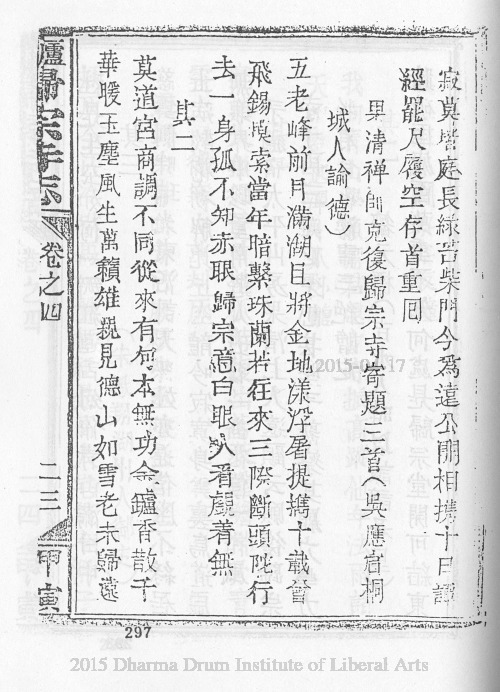 寂莫堦庭長綠苔柴門今為遠公開相携十日譚
經罷尺履空存首重囘
果清禪師克復歸宗寺寄題三首(吳應賓桐
城人諭德)
五老峰前月滿湖且將金地漾浮屠提攜十載曾
飛錫摸索當年暗繫珠蘭若往來三際斷頭陀行
去一身孤不知赤眼歸宗意白眼人看覷着無
其二
莫道宮商調不同從來有句本無功金鑪香散千
華暖玉麈風生萬籟雄見德山如雪老未歸遠
廬歸宗寺志
卷之四
二三
甲寅
297
2015 Dharma Drum Institute of Liberal Arts